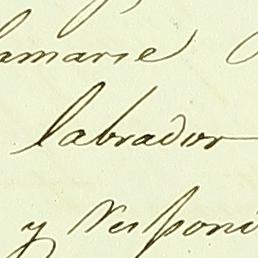 lamarse
labrador
y Respon